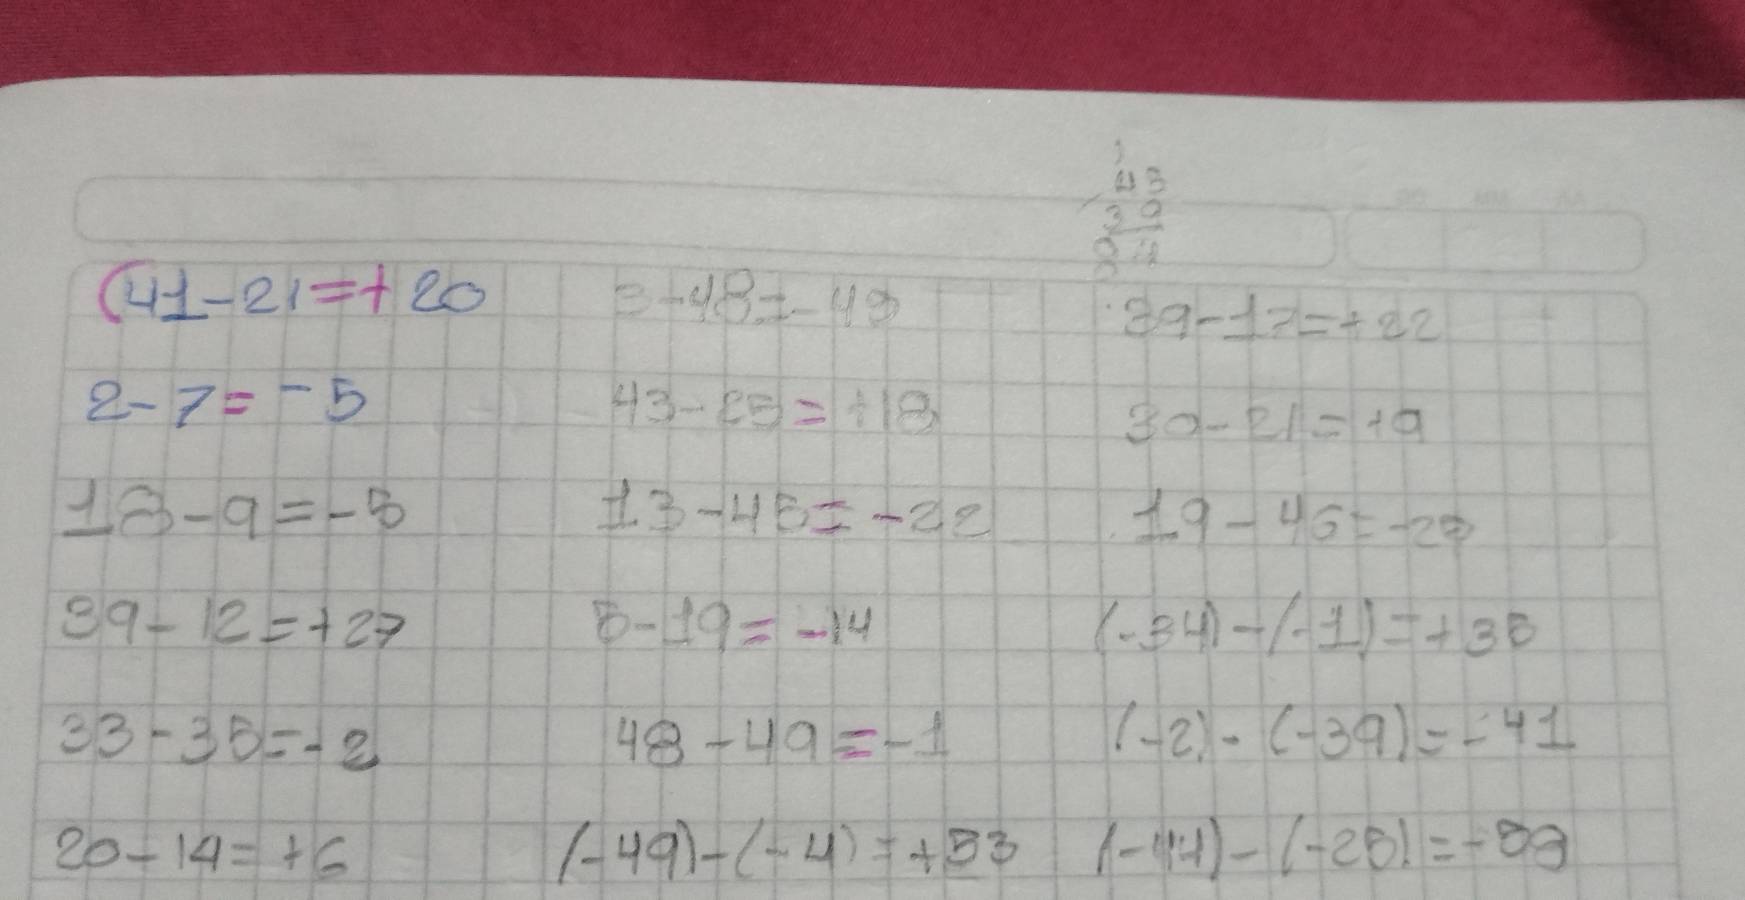 43
39
84
(41-21=+20 3-48=-49 39-17=+22
2-7=-5 43-25=+18 30-21=+9
18-9=-5 13-45=-22 19-46=-27
39-12=+27 5-19=-14 (-34)-(-1)=+35
33-35=-2 48-49=-1 (-2)-(-39)=-41
20-14=+6 (-49)-(-4)=+53 (-44)-(-25)=-59